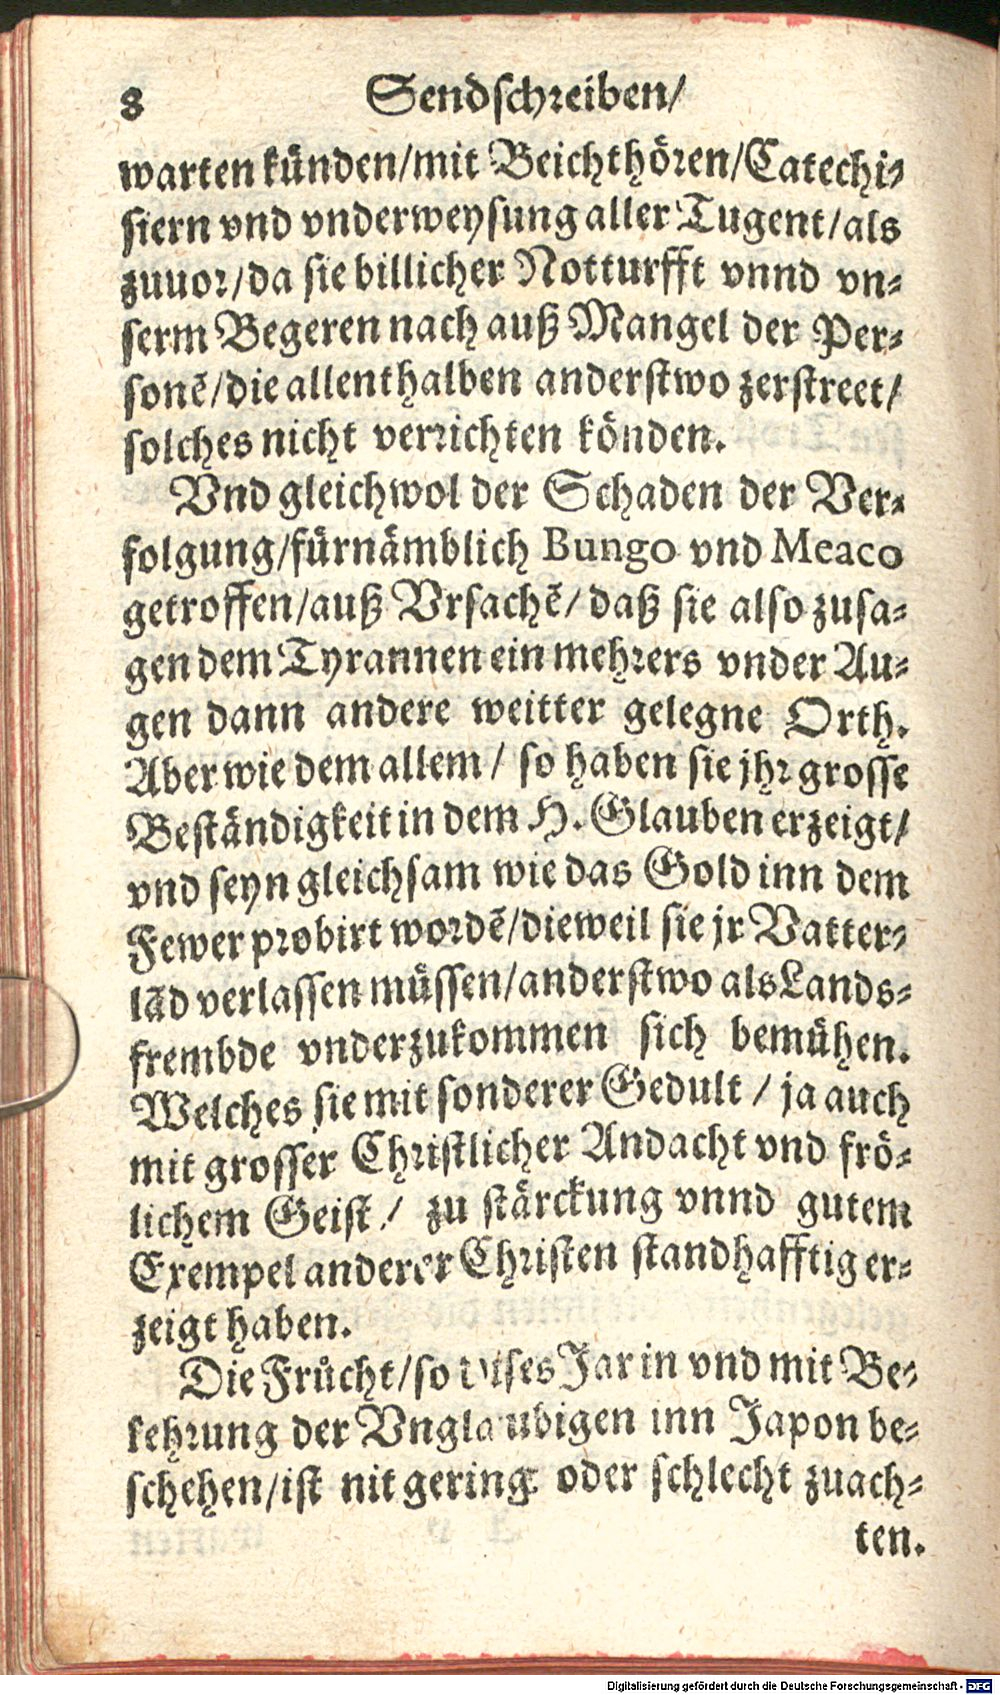 8 Sendschreiben/
warten künden/mit Beichthören/Catechi-
siern vnd vnderweysung aller Tugent/als
zuuor/da sie billicher Notturfft vnnd vn-
serm Begeren nach auß Mangel der Per-
sonẽ/die allenthalben anderstwo zerstreet/
solches nicht verrichten könden.
Vnd gleichwol der Schaden der Ver-
folgung/fürnämblich Bungo vnd Meaco
getroffen/auß Vrsachẽ/daß sie also zusa-
gen dem Tyrannen ein mehrers vnder Au-
gen dann andere weitter gelegne Orth.
Aber wie dem allem/ so haben sie jhr grosse
Beständigkeit in dem H. Glauben erzeigt/
vnd seyn gleichsam wie das Gold inn dem
Fewer probirt wordẽ/dieweil sie jr Vatter-
lãd verlassen müssen/anderstwo als Lands-
frembde vnderzukommen sich bemühen.
Welches sie mit sonderer Gedult / ja auch
mit grosser Christlicher Andacht vnd frö-
lichem Geist / zu stärckung vnnd gutem
Exempel anderer Christen standhafftig er-
zeigt haben.
Die Frücht/so dises Jar in vnd mit Be-
kehrung der Vnglaubigen inn Japon be-
schehen/ist nit gering oder schlecht zuach-
ten.
Digitalisierung gefördert durch die Deutsche Forschungsgemeinschaft - DFG